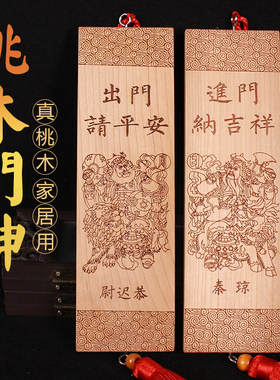 桃木門神
真桃木家居用
出門
請平安
尉迟恭
進門
納吉祥
秦琼